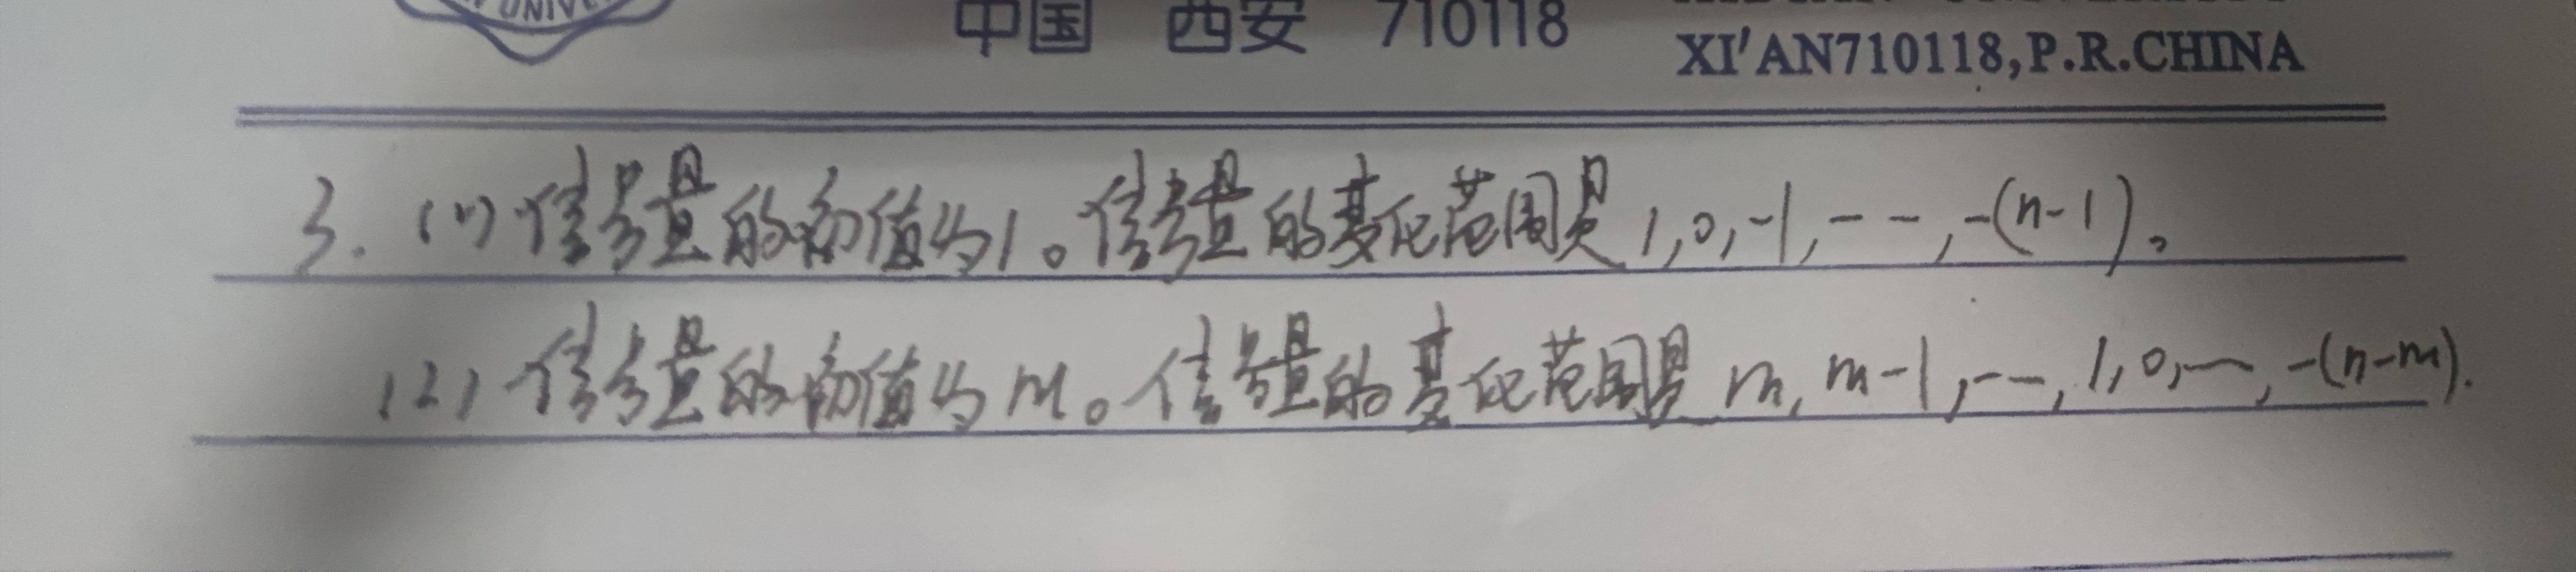 UNIVE
中国 西安 710118
XI'AN710118,P.R.CHINA
3. (1) 信号量的初值为1。信号量的变化范围是 1,0,-1,--,-(n-1)。
(2) 信号量的初值为m。信号量的变化范围是 m, m-1,--,1,0,—,-(n-m).